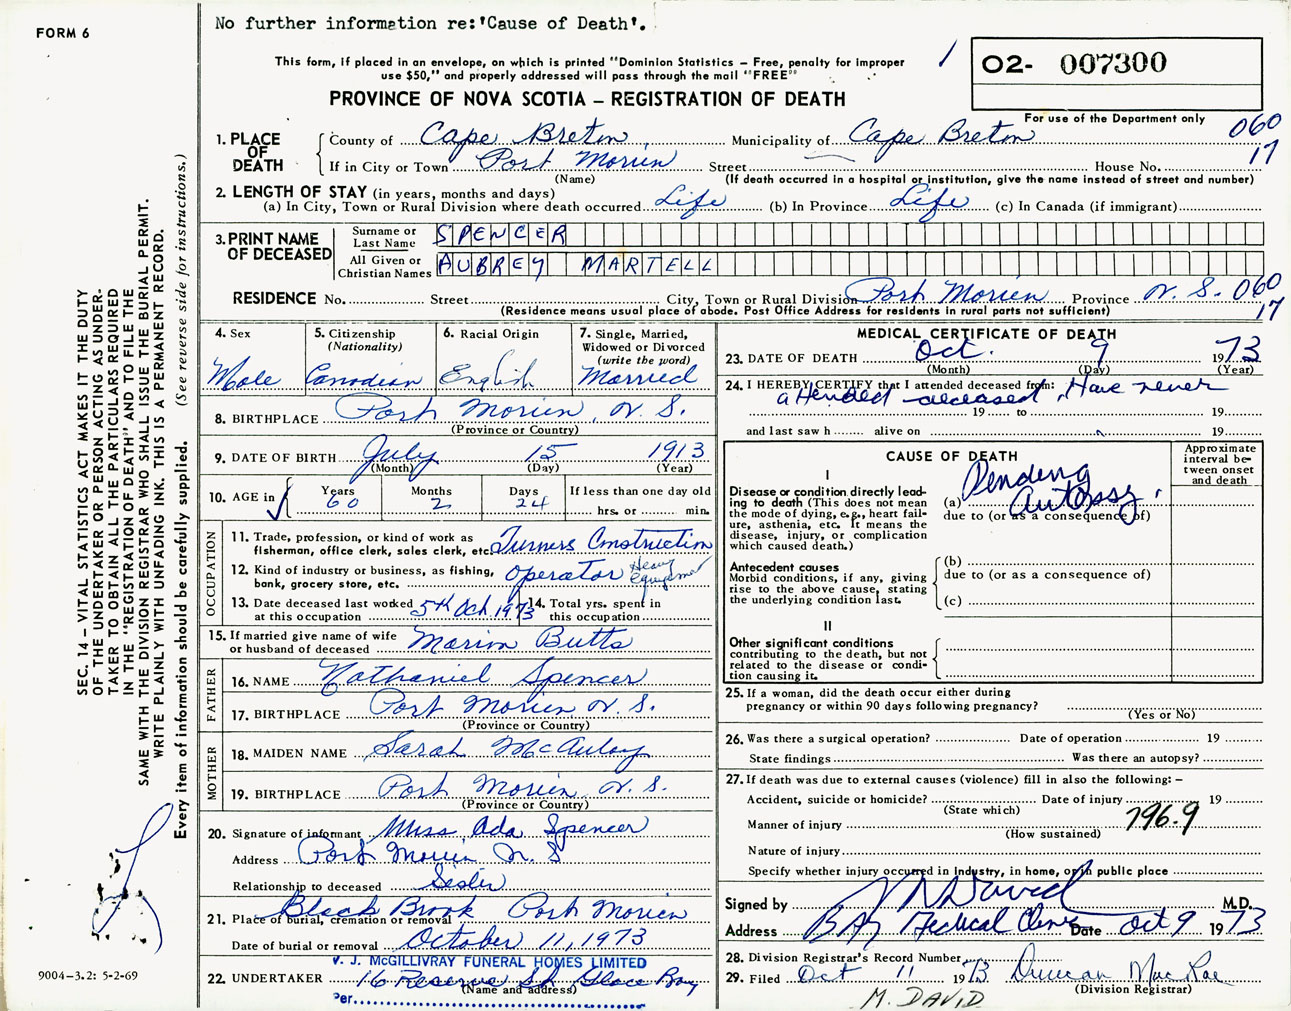 No further information re:'Cause of Death'.
FORM 6
This form, if placed in an envelope, on which is printed "Dominion Statistics – Free, penalty for improper
use $50," and properly addressed will pass through the mail "FREE"
PROVINCE OF NOVA SCOTIA – REGISTRATION OF DEATH
1
O2- 007300
For use of the Department only
060
17
1. PLACE OF DEATH
County of Cape Breton Municipality of Cape Breton
If in City or Town Port Morien Street House No.
(Name) (If death occurred in a hospital or institution, give the name instead of street and number)
2. LENGTH OF STAY (in years, months and days)
(a) In City, Town or Rural Division where death occurred Life (b) In Province Life (c) In Canada (if immigrant)
3. PRINT NAME OF DECEASED
Surname or Last Name SPENCER
All Given or Christian Names AUBREY MARTELL
RESIDENCE No. Street City, Town or Rural Division Port Morien Province N.S. 060
17
(Residence means usual place of abode. Post Office Address for residents in rural parts not sufficient)
4. Sex
Male
5. Citizenship
(Nationality)
Canadian
6. Racial Origin
English
7. Single, Married,
Widowed or Divorced
(write the word)
Married
8. BIRTHPLACE Port Morien, N.S.
(Province or Country)
9. DATE OF BIRTH July 15 1913
(Month) (Day) (Year)
10. AGE in
Years Months Days If less than one day old
60 2 24 hrs. or min.
OCCUPATION
11. Trade, profession, or kind of work as
fisherman, office clerk, sales clerk, etc. Turners Construction
12. Kind of industry or business, as fishing,
bank, grocery store, etc. Operator Heavy equipment
13. Date deceased last worked
at this occupation 5th Oct. 1973
14. Total yrs. spent in
this occupation
15. If married give name of wife
or husband of deceased Marion Butts
FATHER
16. NAME Nathaniel Spencer
17. BIRTHPLACE Port Morien, N.S.
(Province or Country)
MOTHER
18. MAIDEN NAME Sarah McAulay
19. BIRTHPLACE Port Morien N.S.
(Province or Country)
20. Signature of informant Miss Ada Spencer
Address Port Morien N.S
Relationship to deceased Sister
21. Place of burial, cremation or removal Black Brook Port Morien
Date of burial or removal October 11, 1973
V. J. McGILLIVRAY FUNERAL HOMES LIMITED
22. UNDERTAKER 16 Reserve St. Glace Bay
(Name and address)
Per
MEDICAL CERTIFICATE OF DEATH
23. DATE OF DEATH Oct. 9 1973
(Month) (Day) (Year)
24. I HEREBY CERTIFY that I attended deceased from: Have never
attended deceased
19 to 19
and last saw h alive on 19
CAUSE OF DEATH
Approximate
interval be-
tween onset
and death
I
Disease or condition directly lead-
ing to death (This does not
mean the mode of dying, e.g., heart fail-
ure, asthenia, etc. It means the
disease, injury, or complication
which caused death.)
(a) Pending Autopsy.
due to (or as a consequence of)
Antecedent causes
Morbid conditions, if any, giving
rise to the above cause, stating
the underlying condition last.
(b)
due to (or as a consequence of)
(c)
II
Other significant conditions
contributing to the death, but not
related to the disease or condi-
tion causing it.
25. If a woman, did the death occur either during
pregnancy or within 90 days following pregnancy?
(Yes or No)
26. Was there a surgical operation? Date of operation 19
State findings Was there an autopsy?
27. If death was due to external causes (violence) fill in also the following: –
Accident, suicide or homicide? Date of injury 19
(State which)
Manner of injury 796.9
(How sustained)
Nature of injury
Specify whether injury occurred in industry, in home, or in public place
Signed by M David M.D.
Address BAY Medical Clinic Date Oct 9 1973
28. Division Registrar's Record Number
29. Filed Oct 11 1973 Duncan MacRae
(Division Registrar)
M. DAVID
SEC. 14 – VITAL STATISTICS ACT MAKES IT THE DUTY
OF THE UNDERTAKER OR PERSON ACTING AS UNDER-
TAKER TO OBTAIN ALL THE PARTICULARS REQUIRED
IN THE "REGISTRATION OF DEATH" AND TO FILE THE
SAME WITH THE DIVISION REGISTRAR WHO SHALL ISSUE THE BURIAL PERMIT.
WRITE PLAINLY WITH UNFADING INK. THIS IS A PERMANENT RECORD.
Every item of information should be carefully supplied. (See reverse side for instructions.)
9004-3.2: 5-2-69